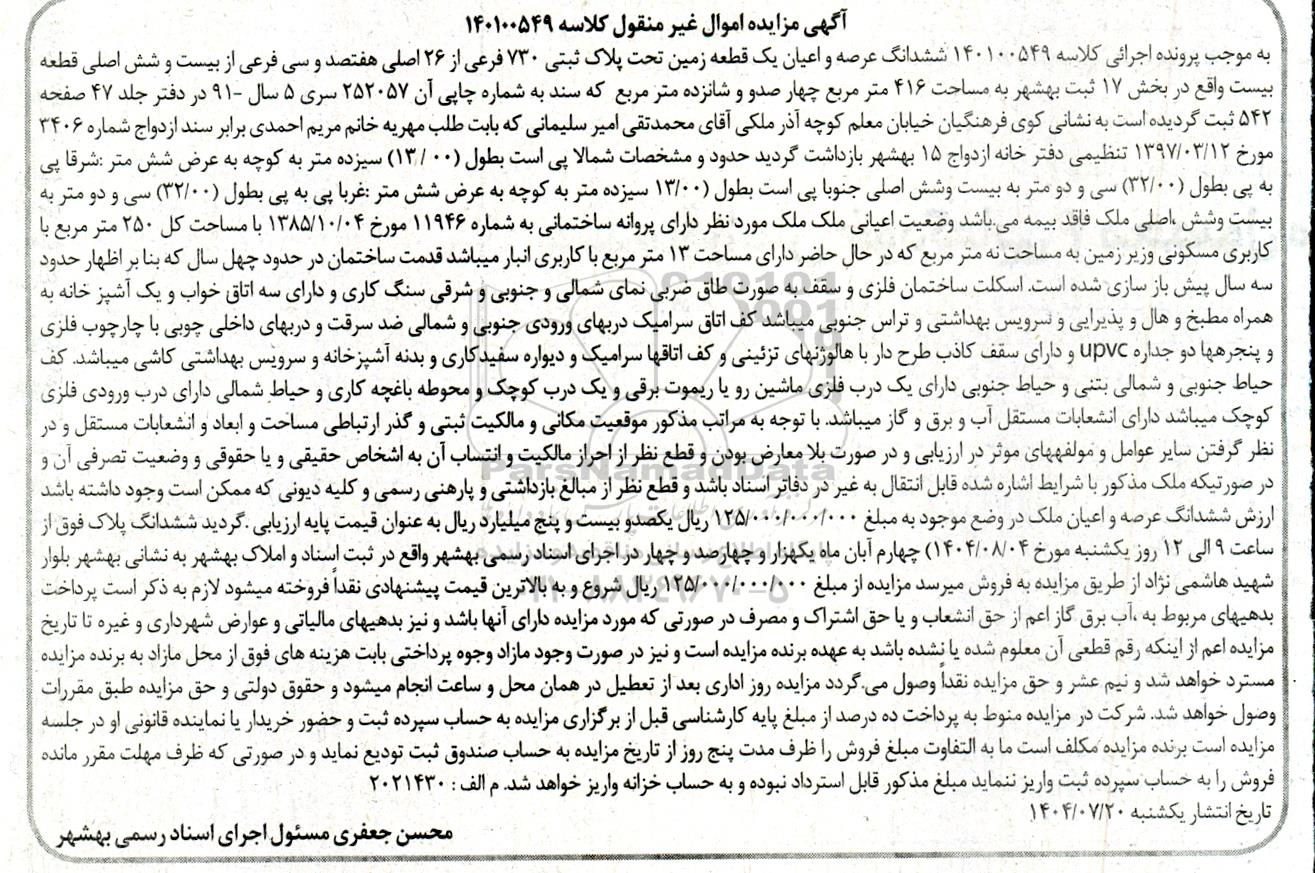 آگهی مزایده اموال غیر منقول کلاسه ۱۴۰۱۰۰۵۴۹
به موجب پرونده اجرائی کلاسه ۱۴۰۱۰۰۵۴۹ ششدانگ عرصه و اعیان یک قطعه زمین تحت پلاک ثبتی ۷۳۰ فرعی از ۲۶ اصلی هفتصد و سی فرعی از بیست و شش اصلی قطعه
بیست واقع در بخش ۱۷ ثبت بهشهر به مساحت ۴۱۶ متر مربع چهار صدو و شانزده متر مربع که سند به شماره چاپی آن ۲۵۲۰۵۷ سری ۵ سال -۹۱ در دفتر جلد ۴۷ صفحه
۵۴۲ ثبت گردیده است به نشانی کوی فرهنگیان خیابان معلم کوچه آذر ملکی آقای محمدتقی امیر سلیمانی که بابت طلب مهریه خانم مریم احمدی برابر سند ازدواج شماره ۳۴۰۶
مورخ ۱۳۹۷/۰۳/۱۲ تنظیمی دفتر خانه ازدواج ۱۵ بهشهر بازداشت گردید حدود و مشخصات شمالا پی است بطول (۱۳/۰۰) سیزده متر به کوچه به عرض شش متر :شرقا پی
به پی بطول (۳۲/۰۰) سی و دو متر به بیست وشش اصلی جنوبا پی است بطول (۱۳/۰۰ سیزده متر به کوچه به عرض شش متر :غربا پی به پی بطول (۳۲/۰۰) سی و دو متر به
بیست وشش ،اصلی ملک فاقد بیمه می.باشد وضعیت اعیانی ملک ملک مورد نظر دارای پروانه ساختمانی به شماره ۱۱۹۴۶ مورخ ۱۳۸۵/۱۰/۰۴ با مساحت کل ۲۵۰ متر مربع با
کاربری مسکونی وزیر زمین به مساحت نه متر مربع که در حال حاضر دارای مساحت ۱۳ متر مربع با کاربری انبار میباشد قدمت ساختمان در حدود چهل سال که بنا بر اظهار حدود
سه سال پیش باز سازی شده است. اسکلت ساختمان فلزی و سقف به صورت طاق ضربی نمای شمالی و جنوبی و شرقی سنگ کاری و دارای سه اتاق خواب و یک آشپز خانه به
همراه مطبخ و هال و پذیرایی و سرویس بهداشتی و تراس جنوبی میباشد کف اتاق سرامیک دربهای ورودی جنوبی و شمالی ضد سرقت و دربهای داخلی چوبی با چارچوب فلزی
و پنجرهها دو جداره upvc و دارای سقف کاذب طرح دار با هالوژنهای تزئینی و کف اتاقها سرامیک و دیواره سفیدکاری و بدنه آشپزخانه و سرویس بهداشتی کاشی میباشد. کف
حیاط جنوبی و شمالی بتنی و حیاط جنوبی دارای یک درب فلزی ماشین رو یا ریموت برقی و یک درب کوچک و محوطه باغچه کاری و حیاط شمالی دارای درب ورودی فلزی
کوچک میباشد دارای انشعابات مستقل آب و برق و گاز میباشد. با توجه به مراتب مذکور موقعیت مکانی و مالکیت ثبتی و گذر ارتباطی مساحت و ابعاد و انشعابات مستقل و در
نظر گرفتن سایر عوامل و مولفههای موثر در ارزیابی و در صورت بلا معارض بودن و قطع نظر از احراز مالکیت و انتساب آن به اشخاص حقیقی و یا حقوقی و وضعیت تصرفی آن و
در صورتیکه ملک مذکور با شرایط اشاره شده قابل انتقال به غیر در دفاتر اسناد باشد و قطع نظر از مبالغ بازداشتی و پارهنی رسمی و کلیه دیونی که ممکن است وجود داشته باشد
ارزش ششدانگ عرصه و اعیان ملک در وضع موجود به مبلغ ۱۲۵/۰۰۰/۰۰۰/۰۰۰ ریال یکصدو بیست و پنج میلیارد ریال به عنوان قیمت پایه ارزیابی .گردید ششدانگ پلاک فوق از
ساعت ۹ الی ۱۲ روز یکشنبه مورخ ۱۴۰۴/۰۸/۰۴) چهارم آبان ماه یکهزار و چهارصد و چهار در اجرای اسناد رسمی بهشهر واقع در ثبت اسناد و املاک بهشهر به نشانی بهشهر بلوار
شهید هاشمی نژاد از طریق مزایده به فروش میرسد مزایده از مبلغ ۱۲۵/۰۰۰/۰۰۰/۰۰۰ ریال شروع و به بالاترین قیمت پیشنهادی نقداً فروخته میشود لازم به ذکر است پرداخت
بدهیهای مربوط به ،آب برق گاز اعم از حق انشعاب و یا حق اشتراک و مصرف در صورتی که مورد مزایده دارای آنها باشد و نیز بدهیهای مالیاتی و عوارض شهرداری و غیره تا تاریخ
مزایده اعم از اینکه رقم قطعی آن معلوم شده یا نشده باشد به عهده برنده مزایده است و نیز در صورت وجود مازاد وجوه پرداختی بابت هزینه های فوق از محل مازاد به برنده مزایده
مسترد خواهد شد و نیم عشر و حق مزایده نقداً وصول می.گردد مزایده روز اداری بعد از تعطیل در همان محل و ساعت انجام میشود و حقوق دولتی و حق مزایده طبق مقررات
وصول خواهد شد. شرکت در مزایده منوط به پرداخت ده درصد از مبلغ پایه کارشناسی قبل از برگزاری مزایده به حساب سپرده ثبت و حضور خریدار یا نماینده قانونی او در جلسه
مزایده است برنده مزایده مکلف است ما به التفاوت مبلغ فروش را ظرف مدت پنج روز از تاریخ مزایده به حساب صندوق ثبت تودیع نماید و در صورتی که ظرف مهلت مقرر مانده
فروش را به حساب سپرده ثبت واریز ننماید مبلغ مذکور قابل استرداد نبوده و به حساب خزانه واریز خواهد شد. م الف : ۲۰۲۱۴۳۰
تاریخ انتشار یکشنبه ۱۴۰۴/۰۷/۲۰
محسن جعفری مسئول اجرای اسناد رسمی بهشهر
ParsNamadData